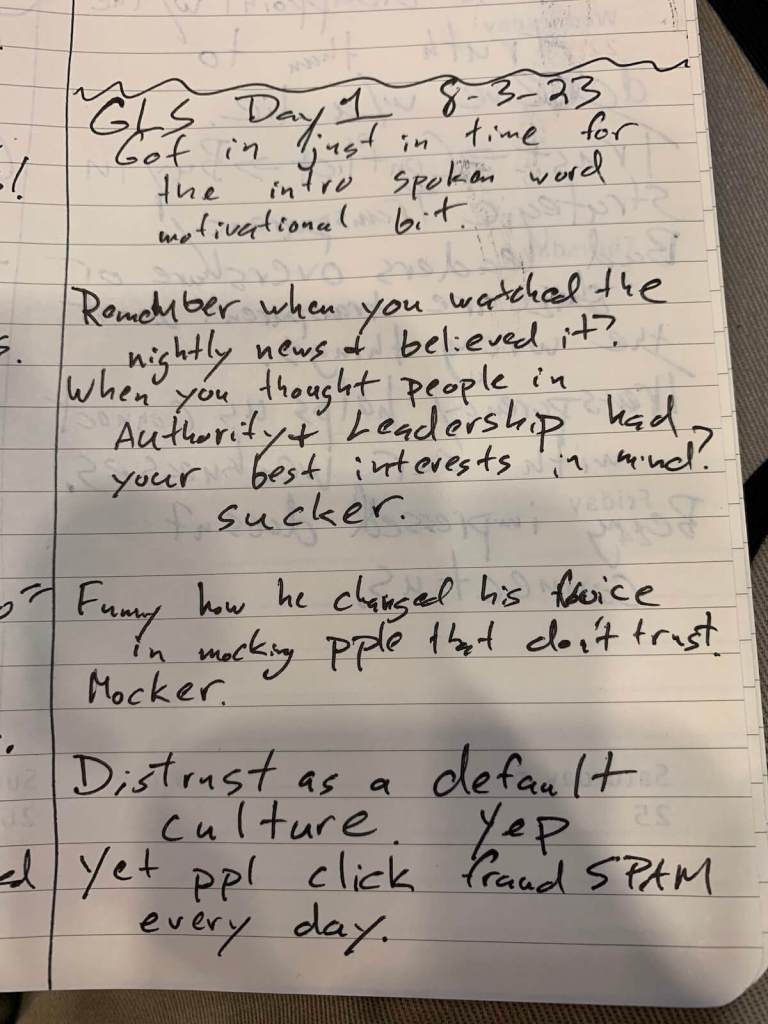 GLS Day 1 8-3-23
Got in just in time for
the intro spoken word
motivational bit.
Remember when you watched the
nightly news & believed it?
When you thought people in
Authority + Leadership had
your best interests in mind?
sucker.
Funny how he changed his voice
in mocking pple that don't trust.
Mocker.
Distrust as a default
culture. Yep
Yet ppl click fraud SPAM
every day.